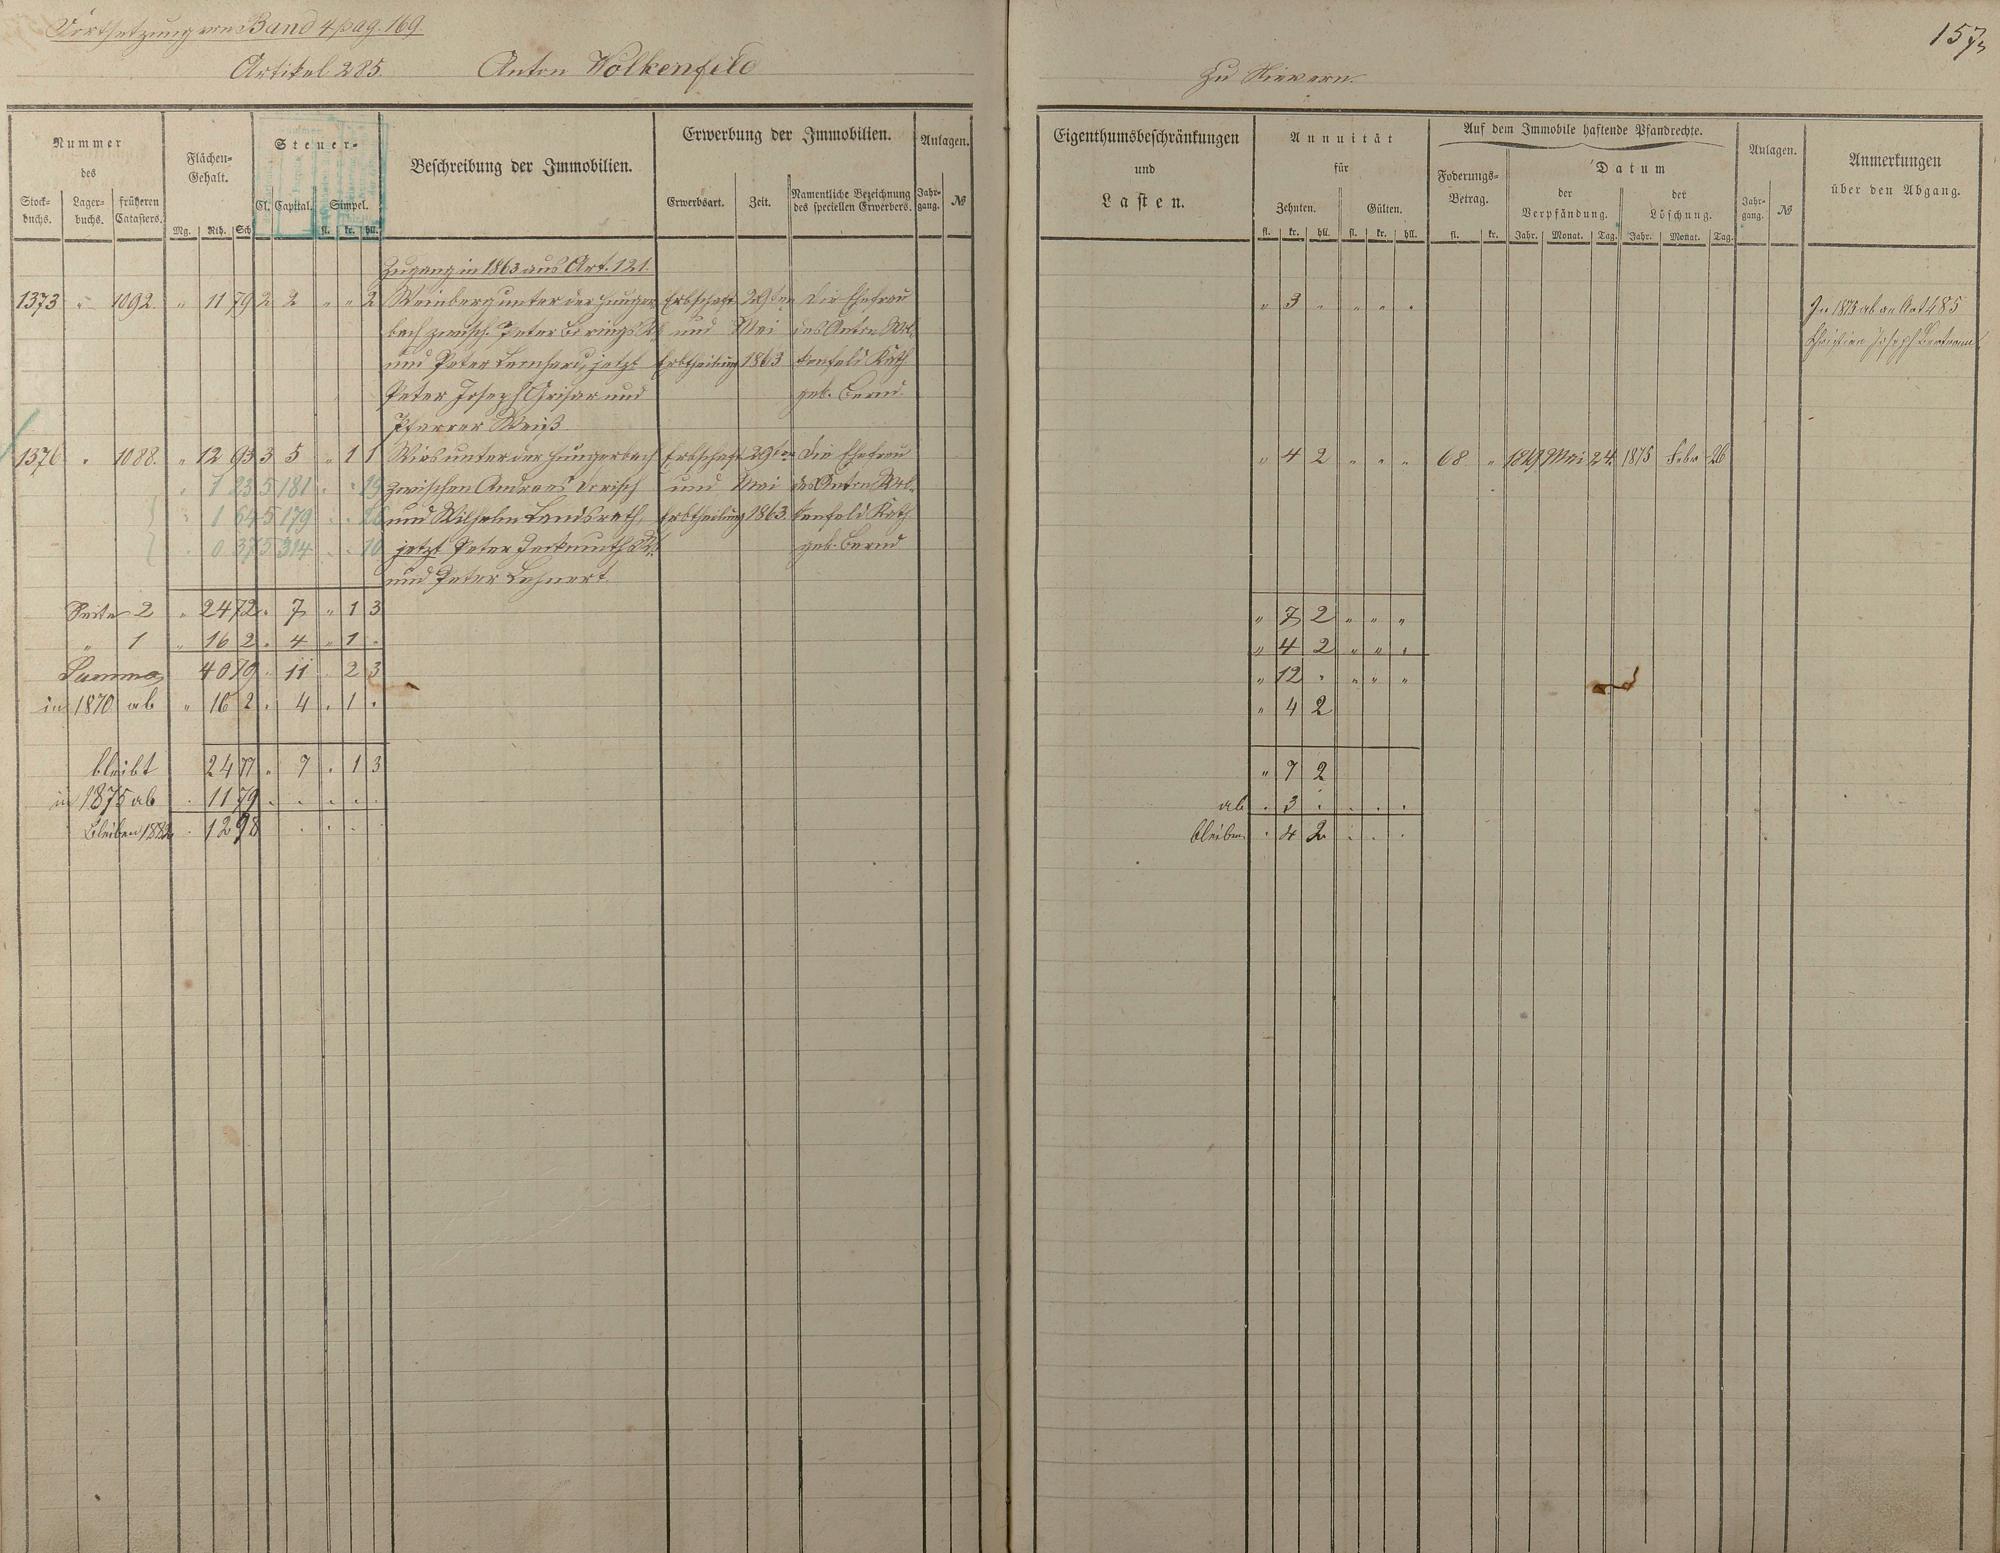 Fortsetzung von Band 4 pag. 169.
Artikel 285. Anton Wolkenfeld
zu Nievern.
157
Nummer
des
Stock-
buchs.
Lager-
buchs.
früheren
Catasters.
Flächen-
Gehalt.
Mg. Rth. Sch
Steuer-
Cl. Capital. Simpel.
fl. kr. hll.
Beschreibung der Immobilien.
Erwerbung der Immobilien.
Erwerbsart. Zeit. Namentliche Bezeichnung
des speciellen Erwerbers.
Anlagen.
Jahr-
gang. №
Eigenthumsbeschränkungen
und
Lasten.
Annuität
für
Zehnten. Gülten.
fl. kr. hll. fl. kr. hll.
Auf dem Immobile haftende Pfandrechte.
Foderungs-
Betrag.
fl. kr.
Datum
der
Verpfändung.
der
Löschung.
Jahr. Monat. Tag. Jahr. Monat. Tag.
Anlagen.
Jahr-
gang. №
Anmerkungen
über den Abgang.
Zugang in 1863 aus Art. 121.
1373 " 1092. " 11 79 2 2 " " 2 Weinberg unter der Hunger- Erbschaft 29ten Die Ehefrau " 3 " " " " In 1875 ab an Art 485
bach zwisch. Peter und Mai des Anton Wol- Christian Joseph
und Peter jetzt Erbtheilung 1863 kenfeld Kath.
Peter Joseph Grisar und geb. Bernd.
Pfarrer Weiß
1376 " 1088. " 12 93 3 5 " 1 1 Wies unter der Hungerbach Erbschaft 29ten Die Ehefrau " 4 2 " " " 68 " 1849 Mai 24. 1875 Febr 26
" 1 23 5 181 " " 19 zwischen Andreas und Mai des Anton Wol-
" 1 64 5 179 " " und Wilhelm Landsrath, Erbtheilung 1863. kenfeld Kath.
" 0 37 5 314 " " 10 jetzt Peter geb. Bernd
und Peter Lehnert.
Seite 2 " 24 72 " 7 " 1 3 " 7 2 " " "
" 1 " 16 2 " 4 " 1 " " 4 2 " " "
Summa 40 79 " 11 " 2 3 " 12 " " " "
in 1870 ab " 16 2 " 4 " 1 " " 4 2
bleibt 24 77 " 7 " 1 3 " 7 2
in 1875 ab " 11 79 " " " " " ab " 3 " " " "
bleiben 1882 " 12 98 " " " " bleiben " 4 2 " " "